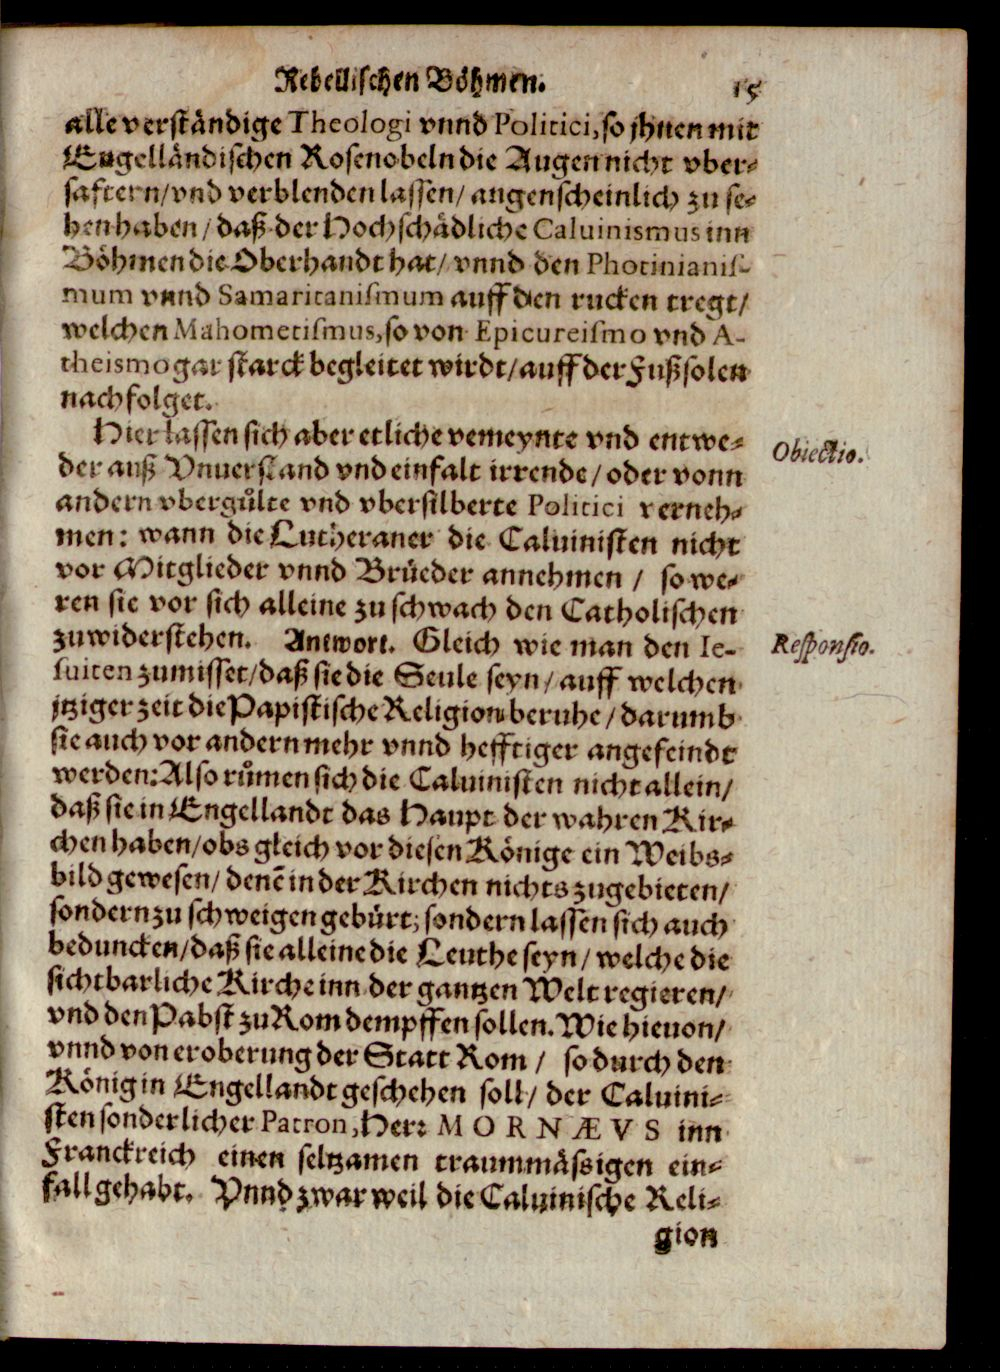 Rebellischen Böhmen. 15
alle verständige Theologi vnnd Politici, so jhnen mit
Engelländischen Rosenobeln die Augen nicht vber-
saftern / vnd verblenden lassen / augenscheinlich zu se-
hen haben / daß der Hochschädliche Caluinismus inn
Böhmen die Oberhandt hat / vnnd den Photinianis-
mum vnnd Samaritanismum auff den rucken tregt /
welchen Mahometismus, so von Epicureismo vnd A-
theismo gar starck begleitet wirdt / auff der Fußsolen
nachfolget.
Hier lassen sich aber etliche vemeynte vnd entwe-
Obiectio.
der auß Vnuerstand vnd einfalt irrende / oder vonn
andern vbergůlte vnd vbersilberte Politici verneh-
men: wann die Lutheraner die Caluinisten nicht
vor Mitglieder vnnd Brüeder annehmen / so we-
ren sie vor sich alleine zu schwach den Catholischen
zuwiderstehen. Antwort. Gleich wie man den Ie-
Responsio.
suiten zumisset / daß sie die Seule seyn / auff welchen
jtziger zeit die Papistische Religion beruhe / darumb
sie auch vor andern mehr vnnd hefftiger angefeindt
werden: Also růmen sich die Caluinisten nicht allein /
daß sie in Engellandt das Haupt der wahren Kir-
chen haben / obs gleich vor diesen Könige ein Weibs-
bild gewesen / denē in der Kirchen nichts zugebieten /
sondern zu schweigen gebürt; sondern lassen sich auch
beduncken / daß sie alleine die Leuthe seyn / welche die
sichtbarliche Kirche inn der gantzen Welt regieren /
vnd den Pabst zu Rom dempffen sollen. Wie hieuon /
vnnd von eroberung der Statt Rom / so durch den
König in Engellandt geschehen soll / der Caluini-
sten sonderlicher Patron, Herr MORNÆVS inn
Franckreich einen seltzamen traummässigen ein-
fall gehabt. Vnnd zwar weil die Caluinische Reli-
gion